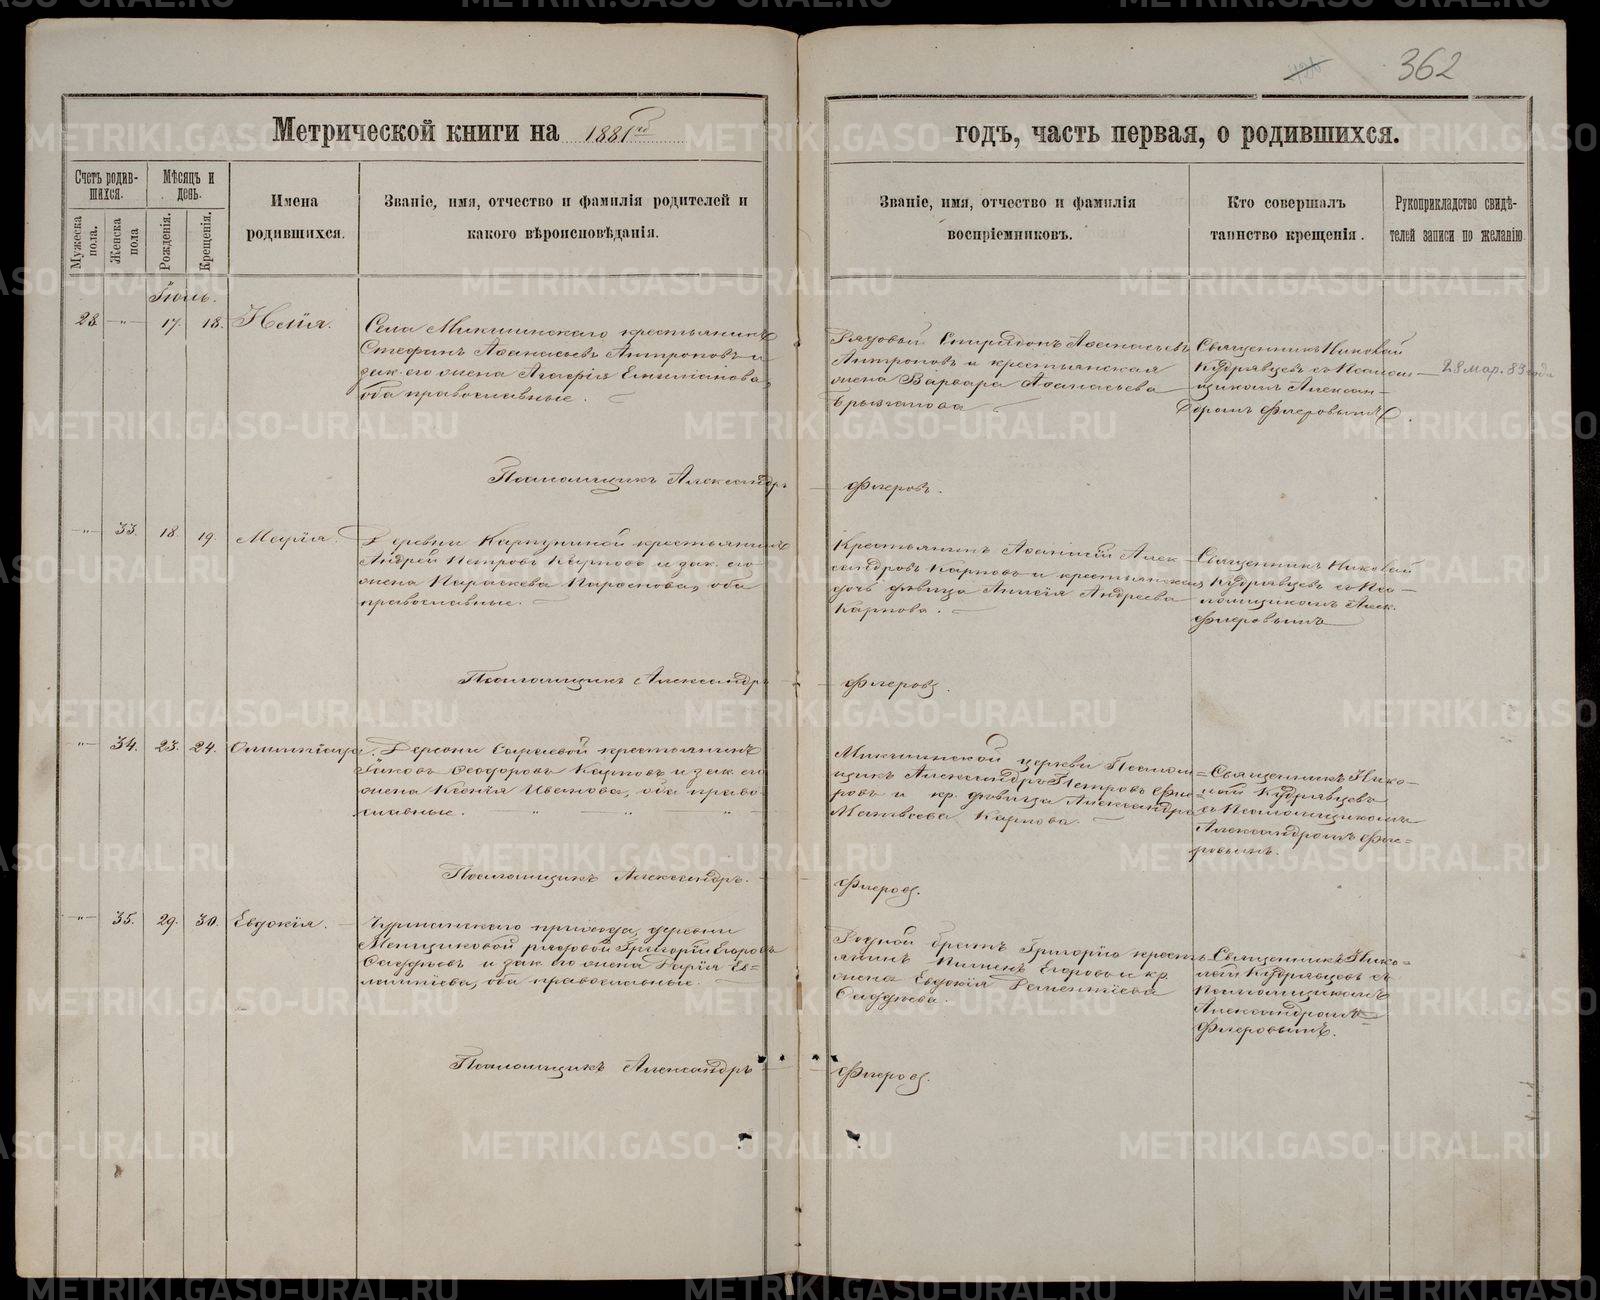 362
Метрической книги на 1881й
годъ, часть первая, о родившихся.
Счетъ родив-
шихся.
Мужеска пола.
Женска пола
Мѣсяцъ и
день.
Рожденія.
Крещенія.
Имена
родившихся.
Званіе, имя, отчество и фамилія родителей и
какого вѣроисповѣданія.
Званіе, имя, отчество и фамилія
воспріемниковъ.
Кто совершалъ
таинство крещенія.
Рукоприкладство свидѣ-
телей записи по желанію
Іюль.
28. -"- 17. 18.
Села Микшинскаго крестьянинъ
Стефанъ Аѳанасьевъ Антроповъ и
зак. его жена Агафія
оба православные.
Рядовой Спиридонъ Аѳанасьевъ
Антроповъ и крестьянская
жена Варвара Аѳанасьева
Священникъ Николай
Кудрявцевъ съ Псалом-
щикомъ Алексан-
дромъ Флеровымъ.
28 мар. 83 года
Псаломщикъ Александръ
Флеровъ.
-"- 33. 18. 19. Марія.
деревни Карпуниной крестьянинъ
Андрей Петровъ Карповъ и зак. его
жена Параскева оба
православные.
Крестьянинъ Алек-
сандровъ Карповъ и крестьянская
дочь дѣвица Анисія Андреева
Карпова.
Священникъ Николай
Кудрявцевъ съ Пса-
ломщикомъ Алек.
Флеровымъ
Псаломщикъ Александръ
Флеровъ.
-"- 34. 23. 24. Олимпіада.
Деревни крестьянинъ
Іаковъ Ѳеодоровъ Карповъ и зак. его
жена Ксенія Иванова, оба право-
славные.
Микшинской церкви Псалом-
щикъ Александръ Петровъ Фле-
ровъ и кр. дѣвица Александра
Матвѣева Карпова.
Священникъ Нико-
лай Кудрявцевъ
съ Псаломщикомъ
Александромъ Фле-
ровымъ.
Псаломщикъ Александръ.
Флеровъ.
-"- 35. 29. 30. Евдокія.
прихода, деревни
Меньщиковой рядовой Григорій Егоровъ
и зак. его жена Дарія Ев-
лампіева, оба православные.
Родной братъ Григорія кресть-
янинъ Егоровъ и кр.
жена Евдокія
Священникъ Нико-
лай Кудрявцевъ съ
Псаломщикомъ
Александромъ
Флеровымъ.
Псаломщикъ Александръ
Флеровъ.
METRIKI.GASO-URAL.RU